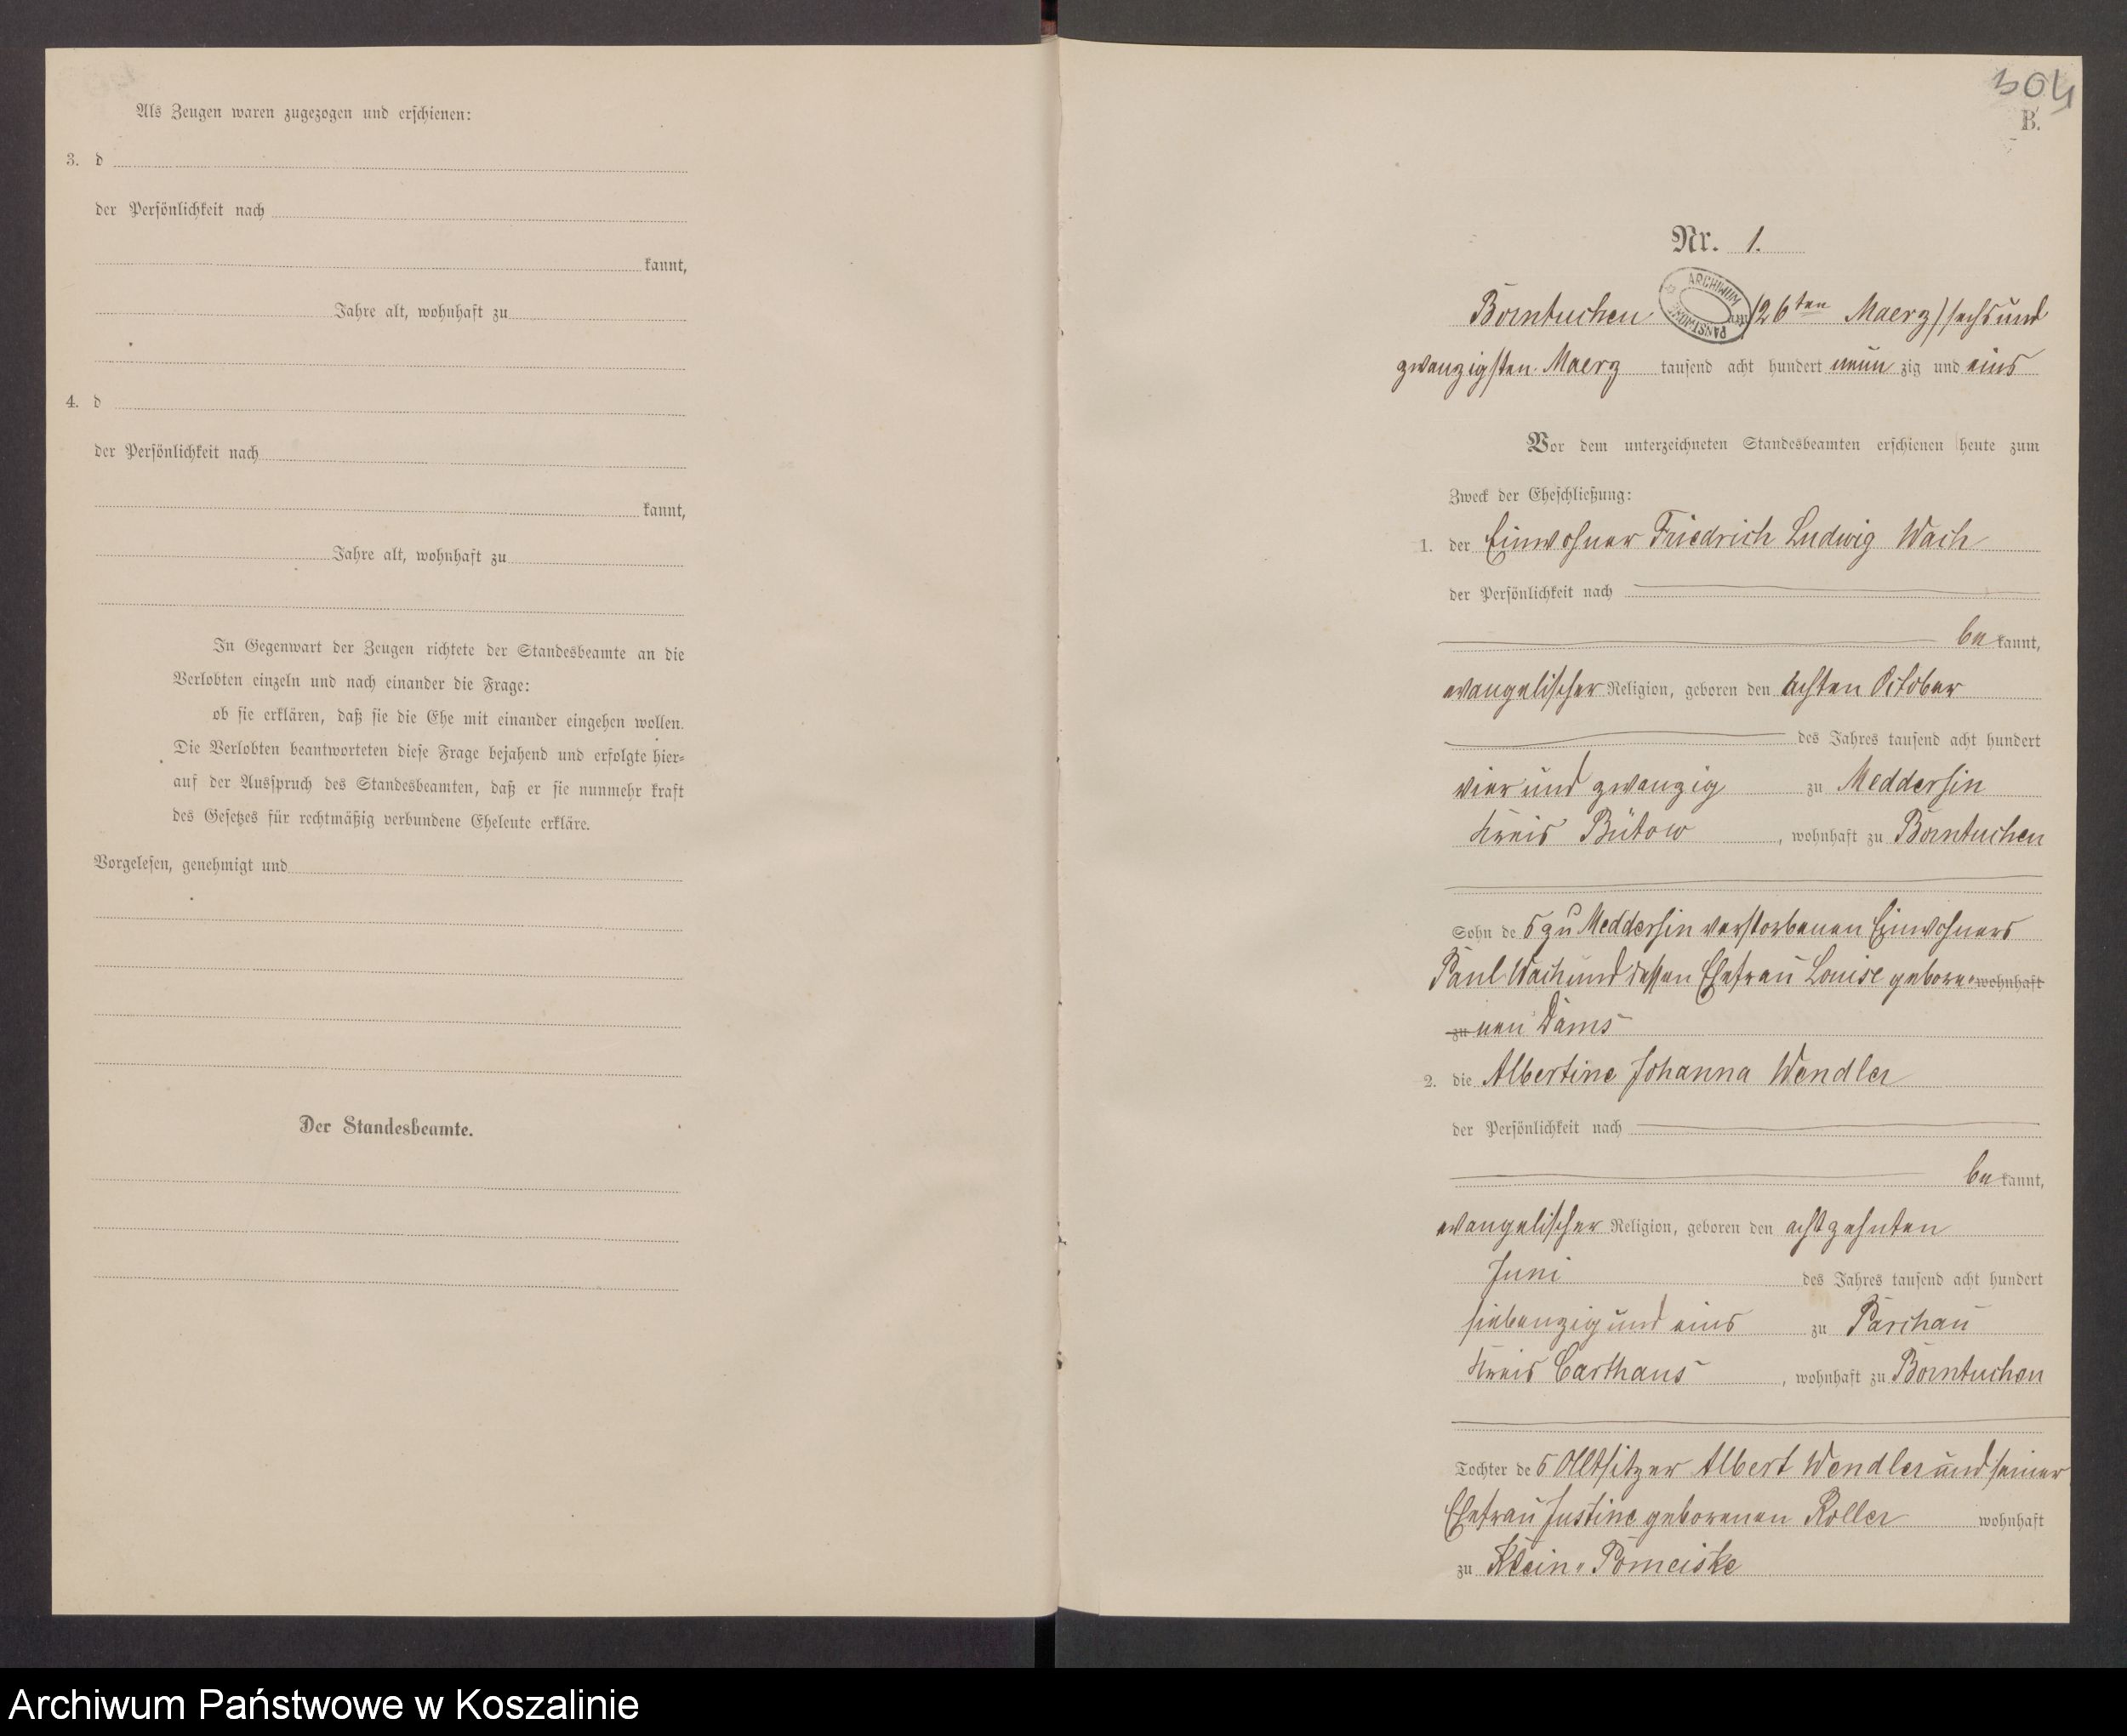 Als Zeugen waren zugezogen und erschienen:
3. d
der Persönlichkeit nach
kannt,
Jahre alt, wohnhaft zu
4. d
der Persönlichkeit nach
kannt,
Jahre alt, wohnhaft zu
In Gegenwart der Zeugen richtete der Standesbeamte an die
Verlobten einzeln und nach einander die Frage:
ob sie erklären, daß sie die Ehe mit einander eingehen wollen.
Die Verlobten beantworteten diese Frage bejahend und erfolgte hier=
auf der Ausspruch des Standesbeamten, daß er sie nunmehr kraft
des Gesetzes für rechtmäßig verbundene Eheleute erkläre.
Vorgelesen, genehmigt und
Der Standesbeamte.
304
B.
Nr. 1.
ARCHIWUM PAŃSTWOWE
Borntuchen am (26ten Maerz) sechsund
zwanzigsten Maerz tausend acht hundert neun zig und eins
Vor dem unterzeichneten Standesbeamten erschienen heute zum
Zweck der Eheschließung:
1. der Einwohner Friedrich Ludwig Wach
der Persönlichkeit nach
be kannt,
evangelischer Religion, geboren den achten October
des Jahres tausend acht hundert
vier und zwanzig zu Meddersin
Kreis Bütow, wohnhaft zu Borntuchen
Sohn des zu Meddersin verstorbenen Einwohners
Paul Wach und dessen Ehefrau Louise gebore= wohnhaft
zu nen Dams
2. die Albertine Johanna Wendler
der Persönlichkeit nach
be kannt,
evangelischer Religion, geboren den achtzehnten
Juni des Jahres tausend acht hundert
siebenzig und eins zu Parchau
Kreis Carthaus, wohnhaft zu Borntuchen
Tochter des Altsitzer Albert Wendler und seiner
Ehefrau Justine geborenen Roller wohnhaft
zu Klein=Pomeiske
Archiwum Państwowe w Koszalinie